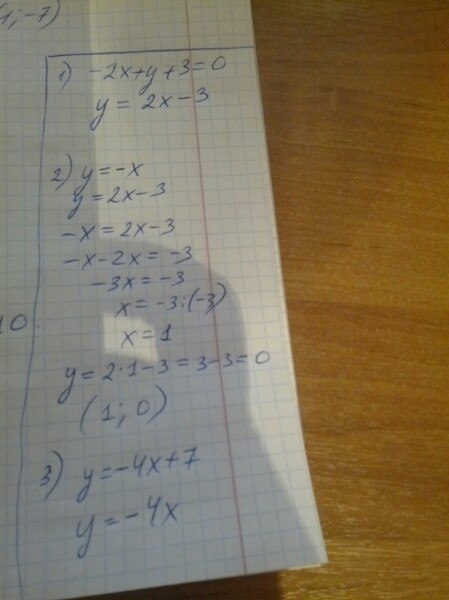 1; -7)
1) -2x+y+3=0
y = 2x-3
2) y=-x
y=2x-3
-x=2x-3
-x-2x=-3
-3x=-3
x=-3:(-3)
10
x=1
y=2·1-3=3-3=0
(1; 0)
3) y=-4x+7
y=-4x